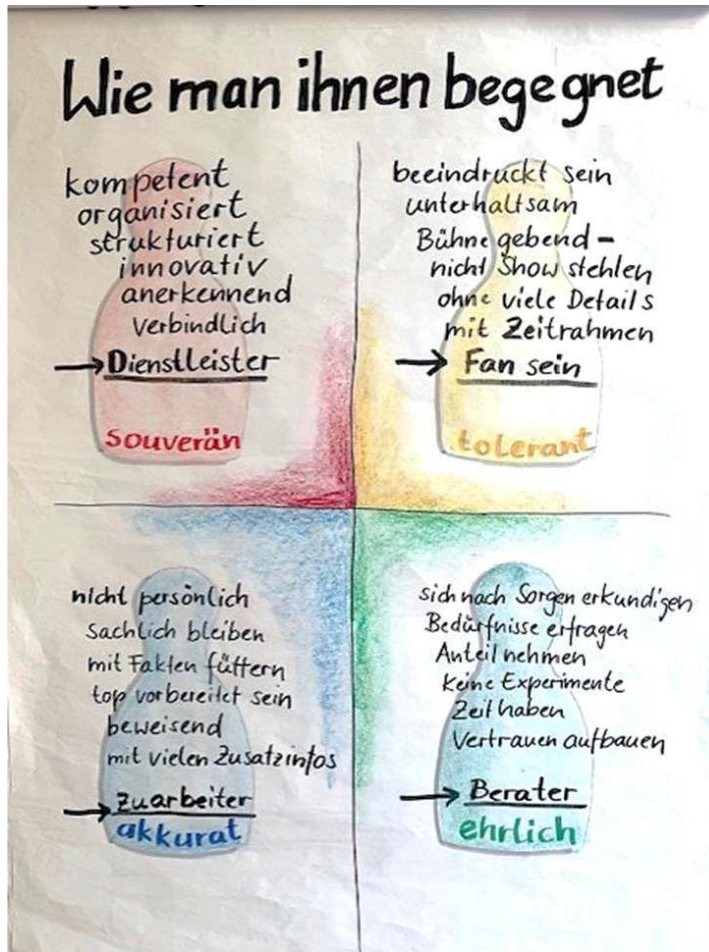 Wie man ihnen begegnet
kompetent
organisiert
strukturiert
innovativ
anerkennend
verbindlich
→ Dienstleister
souverän
beeindruckt sein
unterhaltsam
Bühne gebend –
nicht Show stehlen
ohne viele Details
mit Zeitrahmen
→ Fan sein
tolerant
nicht persönlich
sachlich bleiben
mit Fakten füttern
top vorbereitet sein
beweisend
mit vielen Zusatzinfos
→ Zuarbeiter
akkurat
sich nach Sorgen erkundigen
Bedürfnisse erfragen
Anteil nehmen
keine Experimente
Zeit haben
Vertrauen aufbauen
→ Berater
ehrlich